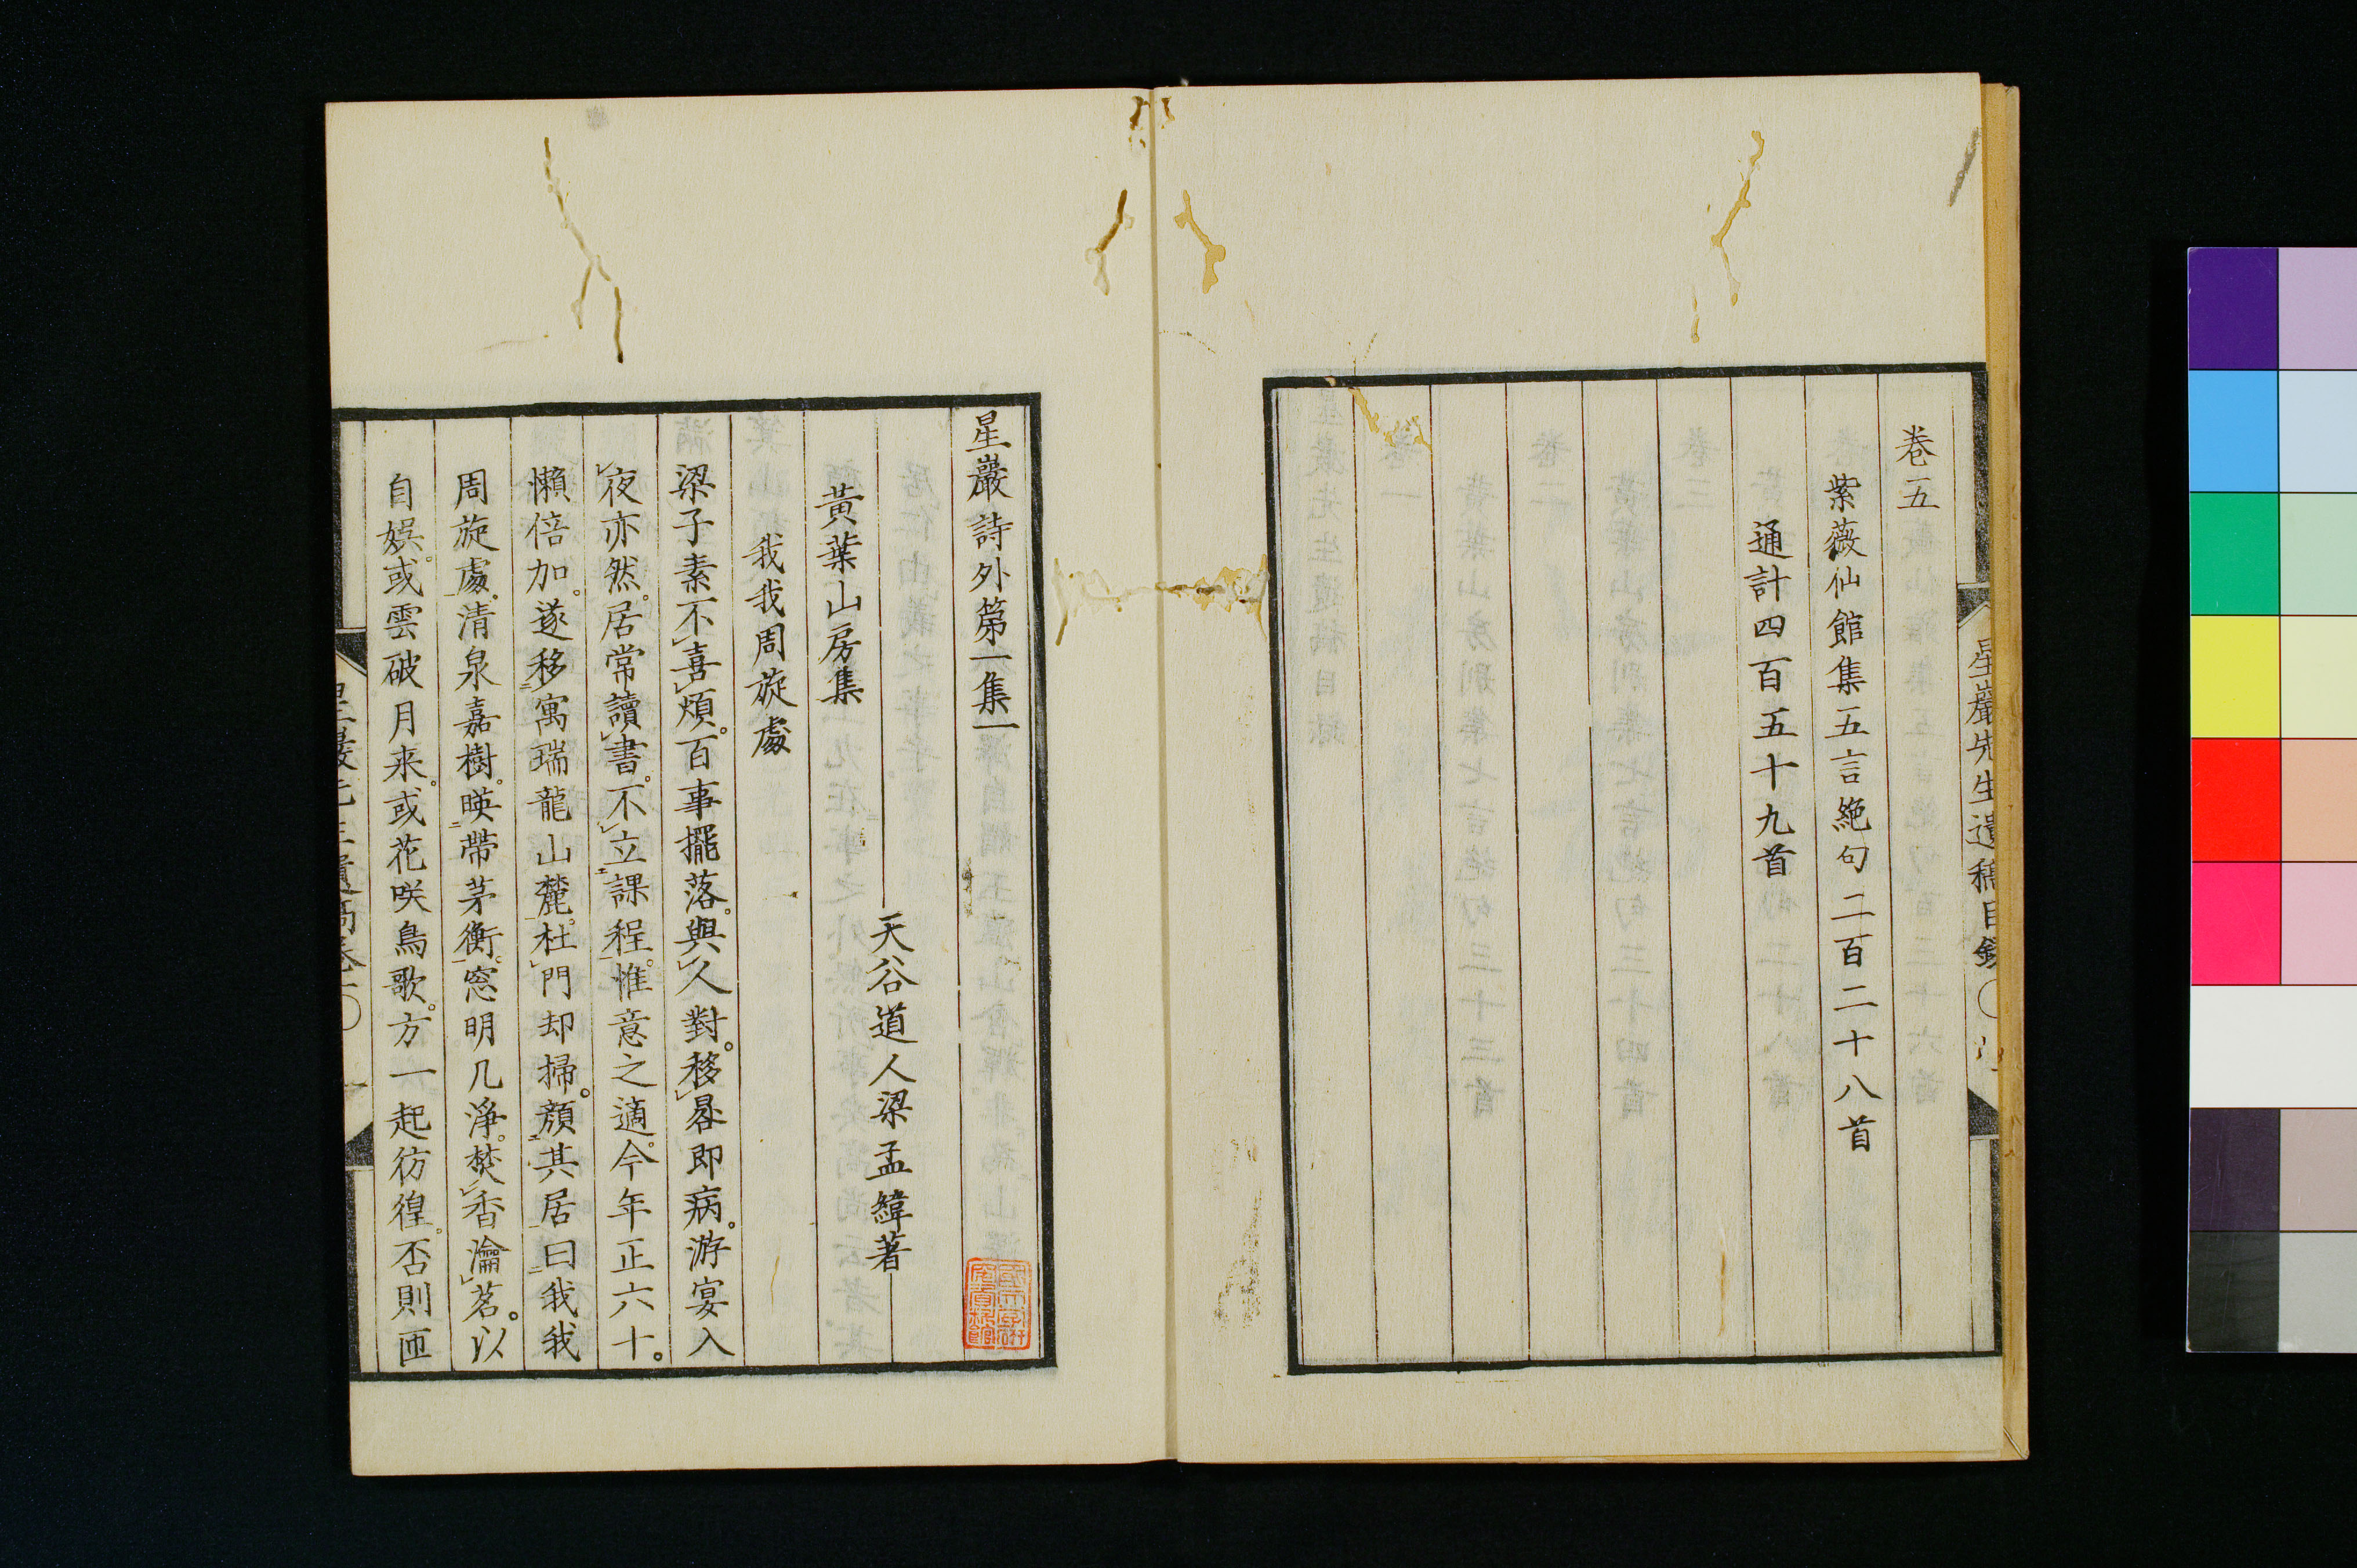 星巖先生遺稿目錄
卷五
紫薇仙館集五言絶句二百二十八首
通計四百五十九首
星巖詩外第一集一
天谷道人梁孟緯著
黃葉山房集
我我周旋處
梁子素不喜煩。百事擺落。與人對。移晷即病。游宴入
夜亦然。居常讀書。不立課程。惟意之適。今年正六十。
懶倍加。遂移寓瑞龍山麓。杜門却掃。顏其居曰我我
周旋處。清泉嘉樹。暎帶茅衡。窓明几淨。焚香瀹茗。以
自娯。或雲破月来。或花咲鳥歌。方一起彷徨。否則匝